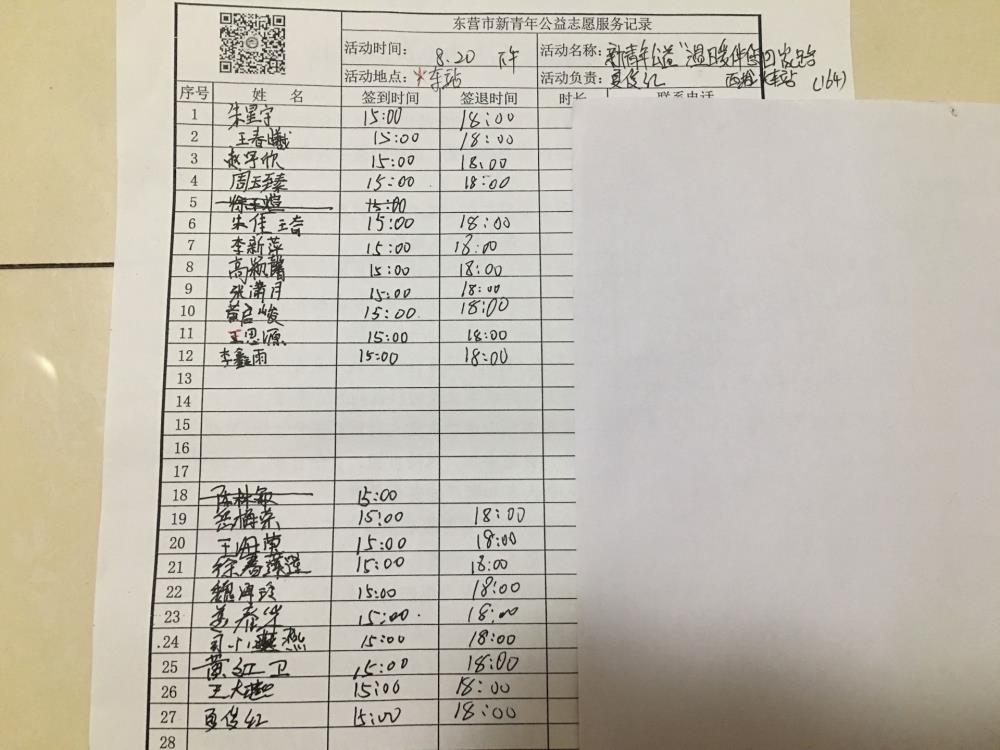 东营市新青年公益志愿服务记录
活动时间: 8.20 下午 活动名称: 新青年公益"温暖伴你回家路
活动地点: 火车站 活动负责: 夏俊红 西 火车站 (164)
序号 姓 名 签到时间 签退时间 时长 联系电话
1 朱星宇 15:00 18:00
2 王春曦 15:00 18:00
3 赵宇欣 15:00 18:00
4 周玉臻 15:00 18:00
5 15:00
6 朱佳琦 15:00 18:00
7 李新萍 15:00 18:00
8 高颖馨 15:00 18:00
9 张潇月 15:00 18:00
10 黄启峻 15:00 18:00
11 王思源 15:00 18:00
12 李鑫雨 15:00 18:00
13
14
15
16
17
18 陈林敏 15:00
19 岳梅荣 15:00 18:00
20 王海 15:00 18:00
21 徐 15:00 18:00
22 魏 玲 15:00 18:00
23 15:00 18:00
24 司小燕 15:00 18:00
25 黄红卫 15:00 18:00
26 王大 15:00 18:00
27 夏俊红 15:00 18:00
28